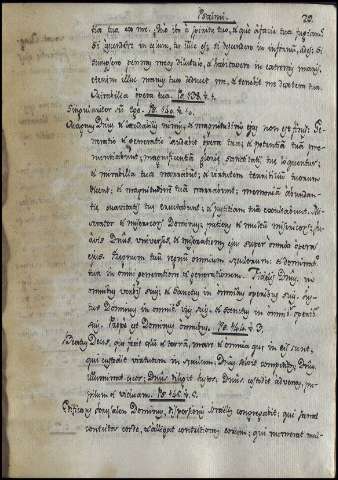 Psalmi. 20.
tia tua ex me. Quo ibo a spiritu tuo, et quo a facie tua fugiam?
Si ascendero in cœlum, tu illic es; si descendero in infernum, ades; si
sumpsero pennas meas diluculo, et habitavero in extremis maris,
etenim illuc manus tua deducet me, et tenebit me dextera tua.
Mirabilia opera tua. Ps. 138. v. 
Ps. 140. v. 10.
Magnus Dnus, et laudabilis nimis, et magnitudinis ejus non est finis. Ge-
neratio et generatio laudabit opera tua, et potentiam tuam
magnificentiam gloriæ sanctitatis tuæ loquentur,
et mirabilia tua narrabunt, et virtutem terribilium tuorum
dicent, et magnitudinem tuam narrabunt, memoriam abundan-
tiæ suavitatis tuæ eructabunt, et justitiam tuam exultabunt. Mi-
serator et misericors Dominus, patiens et multum misericors, su-
avis Dnus universis, et miserationes ejus super omnia opera
ejus. Regnum tuum regnum omnium sæculorum, et dominatio
tua in omni generatione et generationem. Fidelis Dnus in
omnibus verbis suis, et sanctus in omnibus operibus suis. Jus-
tus Dominus in omnibus viis suis, et sanctus in omnibus operib.
suis. Prope est Dominus omnibus, Ps. 144. v. 3.
Beatus Deus, qui fecit cœlum et terram, mare et omnia quæ in eis sunt,
qui custodit veritatem in sæculum. Dnus solvit compeditos, Dnus
illuminat cæcos, Dnus diligit justos. Dnus custodit advenas, pu-
pillum et viduam. Ps. 145. v. 
Ædificans Jerusalem Dominus, dispersiones Israelis congregabit, qui sanat
contritos corde, et alligat contritiones eorum; qui numerat mul-